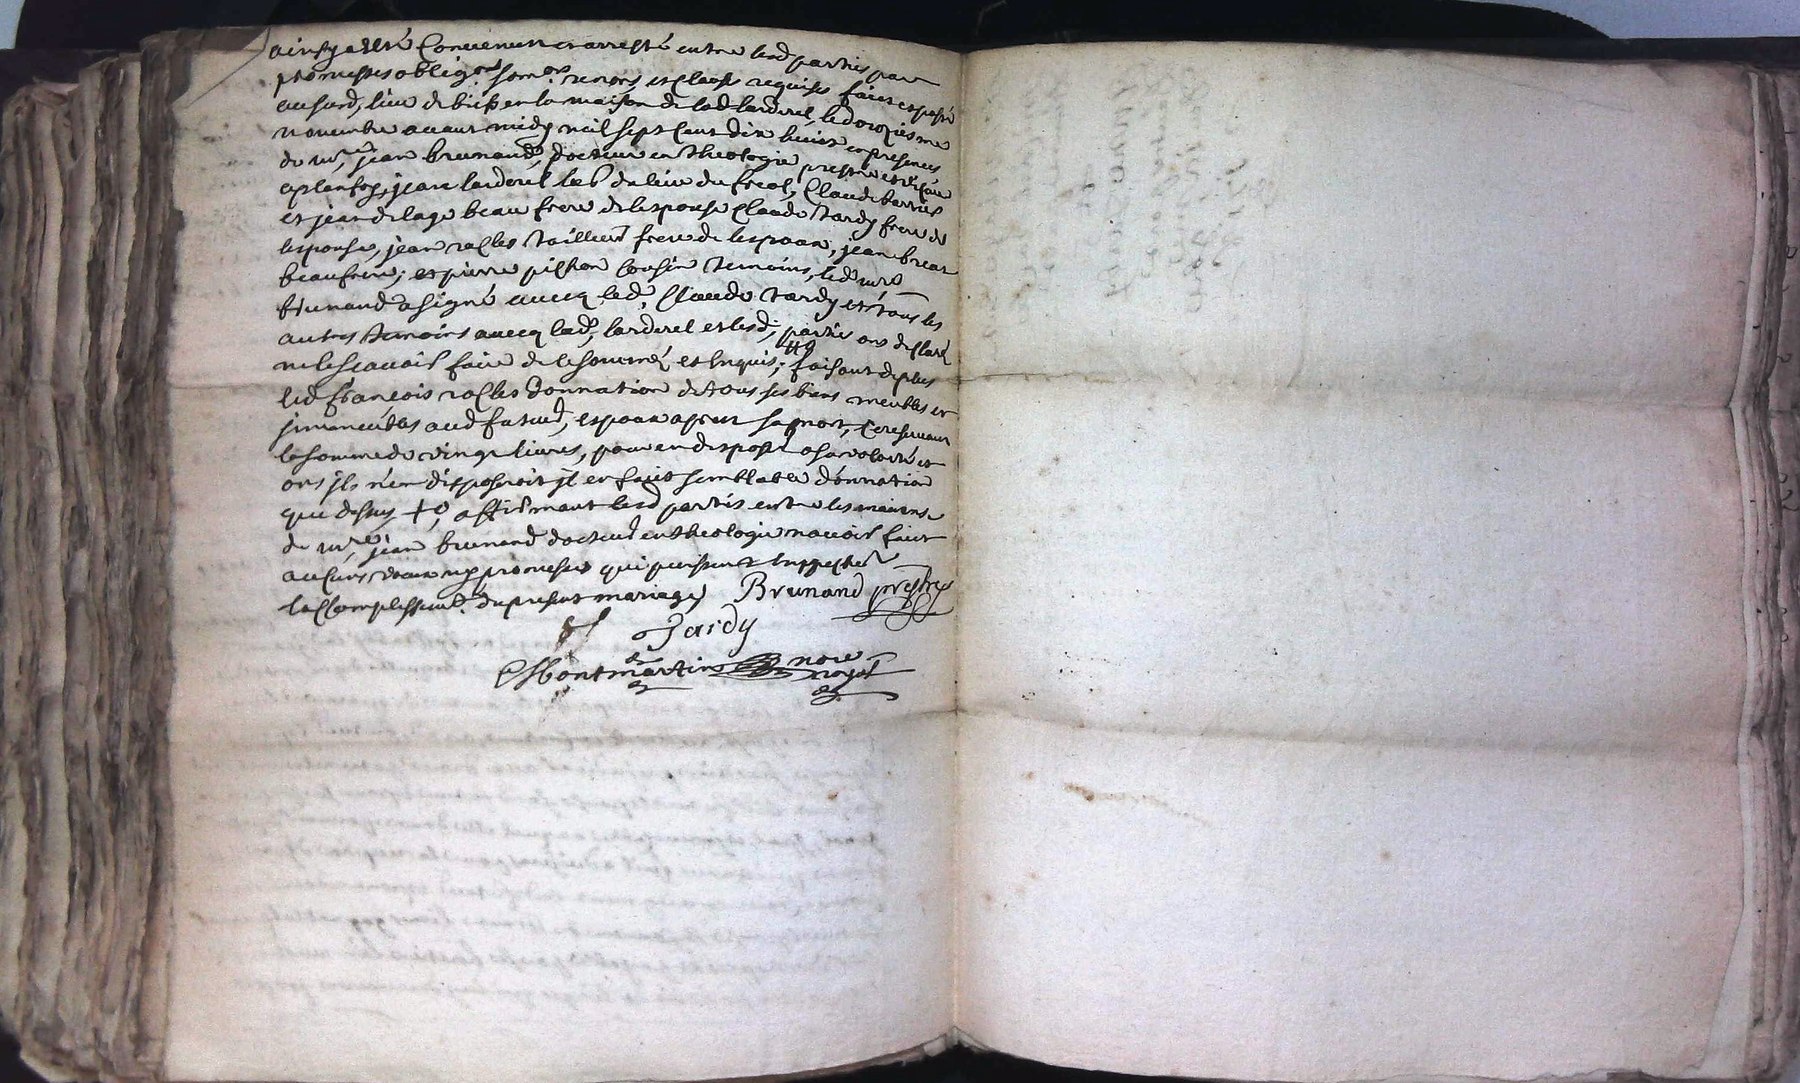 ainsy a esté Convenu et arresté entre lesd parties par
promesses oblig^ons som^ons renons et clauses requises faict et passé
aud lieu de en la maison de lad larderel, le onziesme
novembre avant midy mil sept Cent dix huict en presences
de m^re jean brunand, docteur en theologie prestre et
jean larderel de lieu du Claude barrier
et jean delage beau frere de lespouse Claude tardy frere de
lespouse, jean racles tailleur frere de lespoux, jean breat
beaufrere, et pierre pichon Cousin temoins, led m^re
brunand a signé avecq led, Claude tardy et tous les
autres temoins avecq lad, larderel et lesd, parties ont desclaré
ne le scavoir faire de ce sommés et Enquis; faisant de plus
led françois racles donnation de tous ses biens meubles et
jmmeubles aud futur, espoux apres sa mort, se reservant
la somme de vingt livres, pour en disposer a sa volonté et
ou jl n'en disposeroit jl en faict semblable donnation
que dessus affirmant lesd parties entre les mains
de m^re jean brunand docteur en theologie navoir faict
aucuns veux ny promesses qui puissent Empecher
laccomplissem^t du present mariage Brunand prestre
Tardy
Montmartin no^re
royal